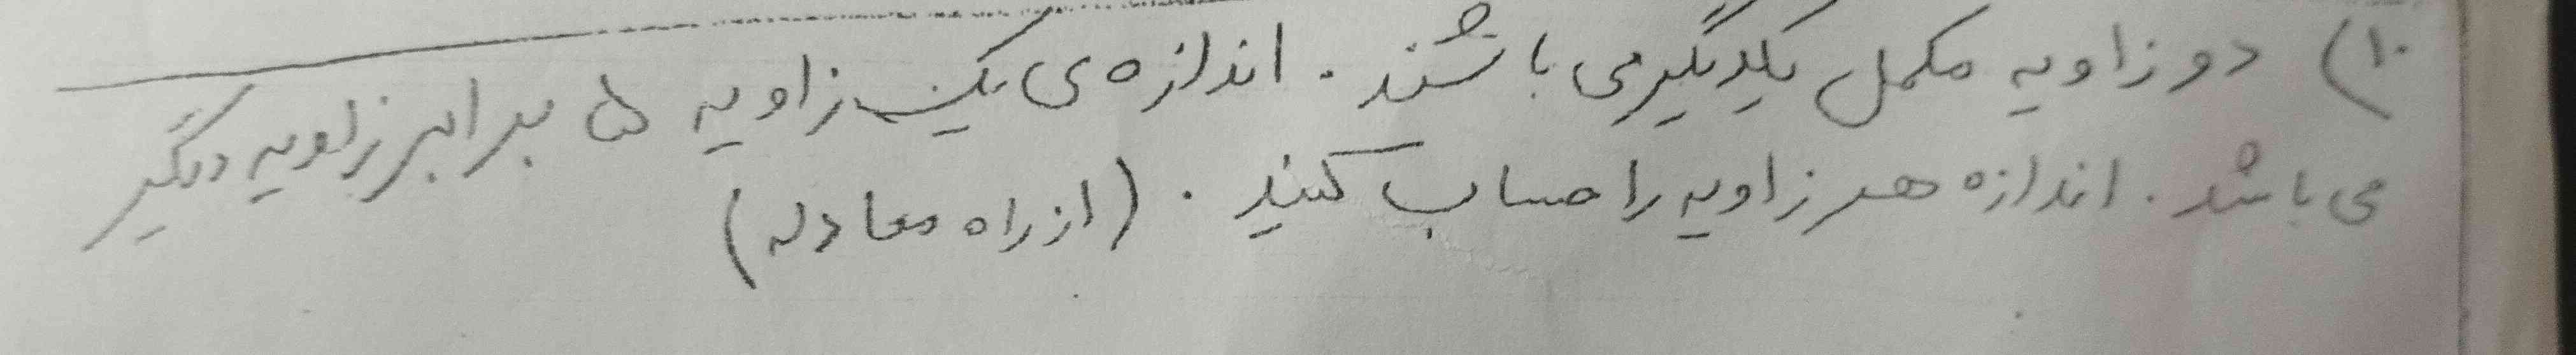 ۱۰) دو زاویه مکمل یکدیگر می باشند. اندازه ی یک زاویه ۵ برابر زاویه دیگر
می باشد. اندازه هر زاویه را حساب کنید. (از راه معادله)